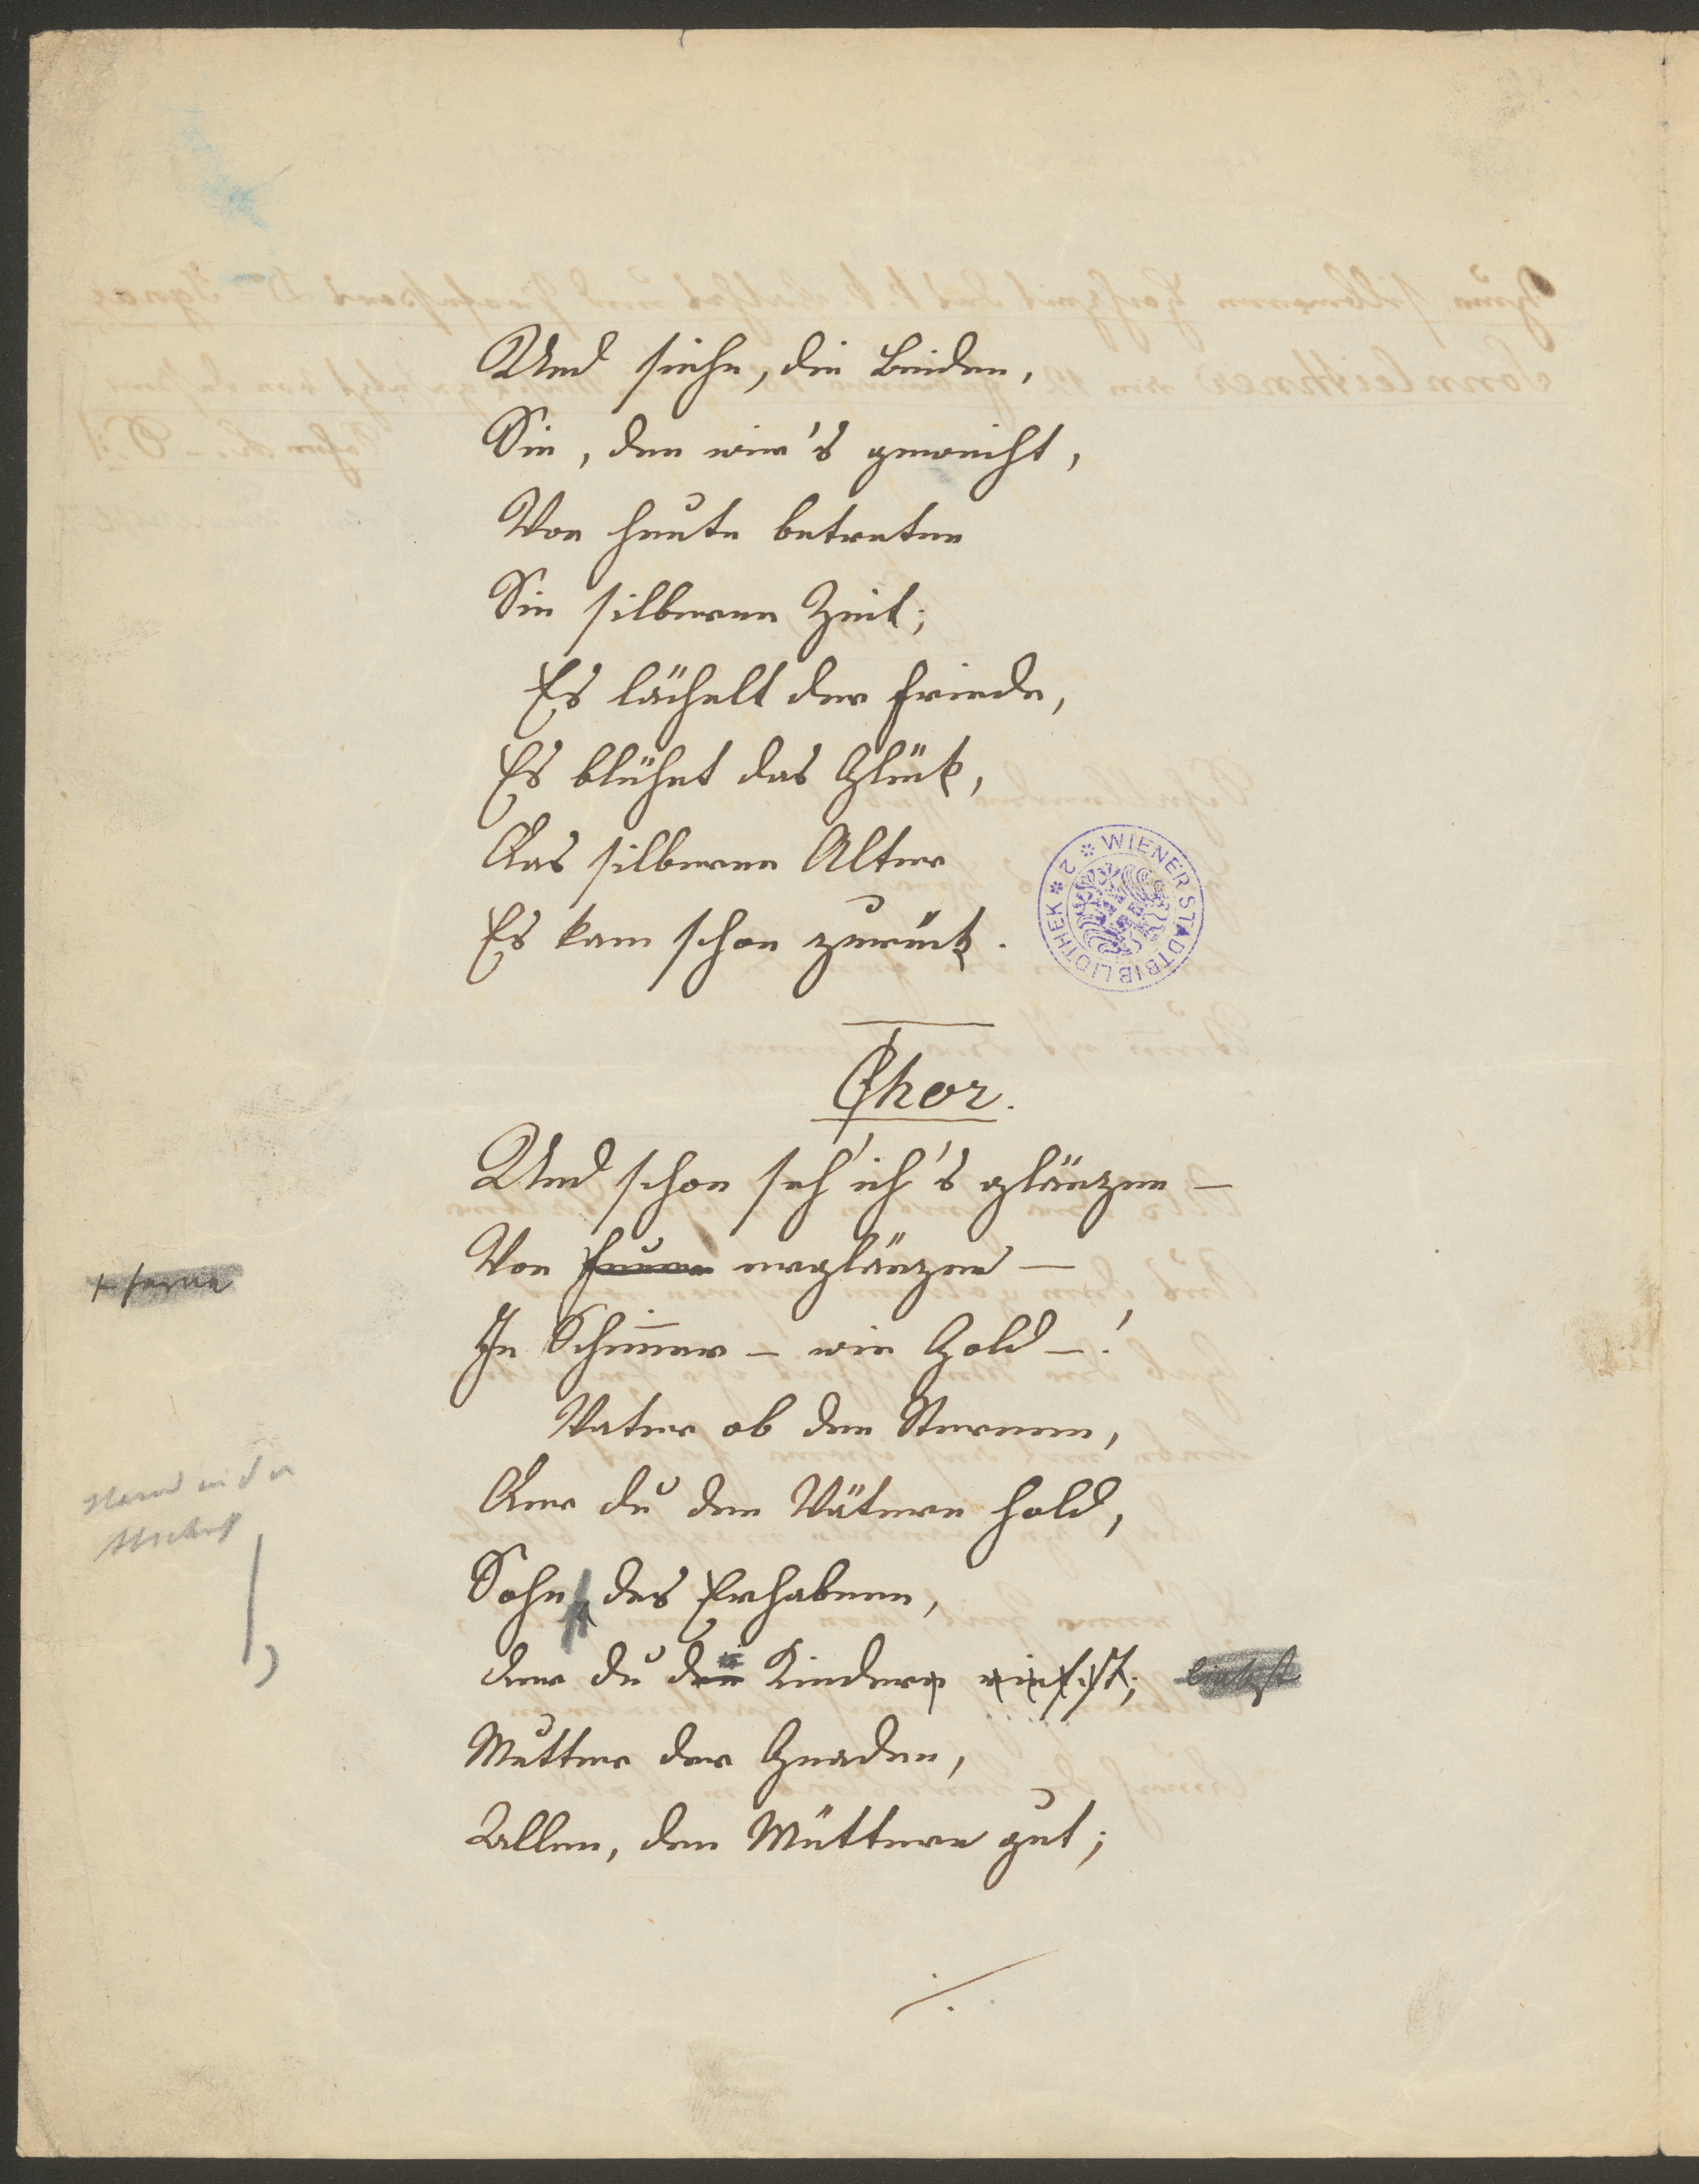 Und siehe, die Beiden,
Die, den wir's geweiht,
Von heute betreten
Die silberne Zeit;
Es lächelt der Friede,
Es blühet das Glück,
Das silberne Alter
Es kam schon zurück.
WIENER STADTBIBLIOTHEK
Chor.
Und schon seh' ich's glänzen –
Von erglänzen –
+ ferne
In Schimmer – wie Gold –!
Vater ob den Sternen,
Der du den Vätern hold,
Stand in der
Sohn des Erhabenen,
der du den Kindern liebst
Mutter der Gnaden,
Allen, den Müttern gut;
./.